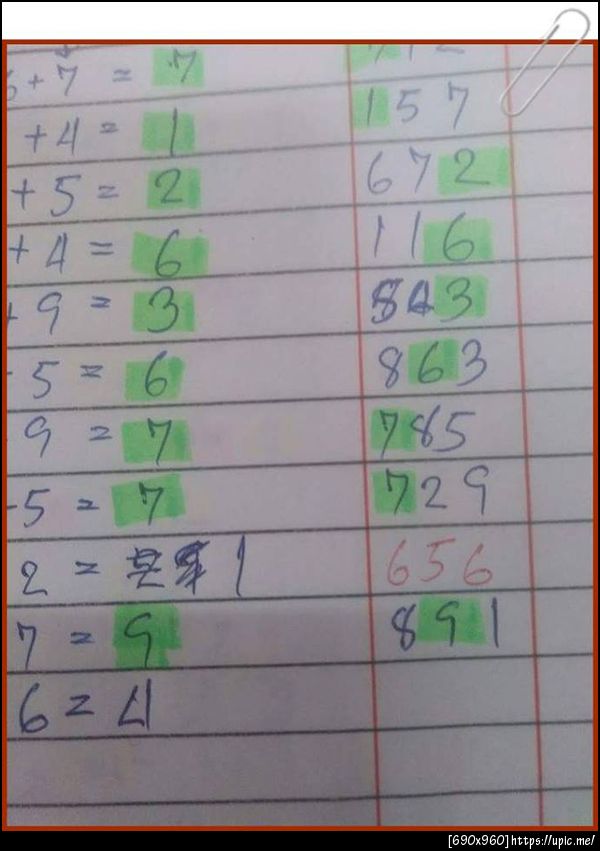 6+7 = 7 712
+4= 1 157
+5= 2 672
+4= 6 116
+9 = 3 843
5 = 6 863
9 = 7 785
-5 = 7 729
2 = 1 656
7 = 9 891
6 = 4
[690x960]https://upic.me/